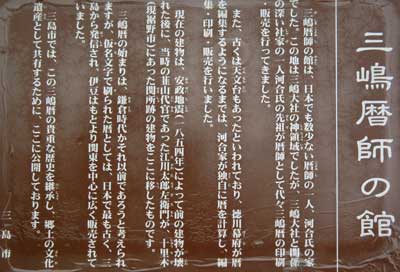 三嶋暦師の館
三嶋暦師の館は、日本でも数少ない暦師の一人、河合氏の家
でした。この地は三嶋大社の神領域でしたが、三嶋大社と関係
の深い社家の一人河合氏の先祖が暦師として代々三嶋暦の印刷
・販売を行ってきました。
また、古くは天文台もあったといわれており、徳川幕府が暦
を編集するようになるまでは、河合家が独自に暦を計算し、編
集・印刷・販売を行いました。
現在の建物は、安政地震(一八五四年)によって前の建物が壊
れた後に、当時の韮山代官であった江川太郎左衛門が、十里木
(現裾野市)にあった関所跡の建物をここに移したものです。
三嶋暦の始まりは、鎌倉時代かそれ以前であろうと考えられ
ますが、仮名文字で刷られた暦としては、日本で最も古く、三
島から発信され、伊豆はもとより関東を中心に広く販売されて
いました。
三島市では、この三嶋暦の貴重な歴史を継承し、郷土の文化
遺産として共有するために、ここに公開しております。
三島市